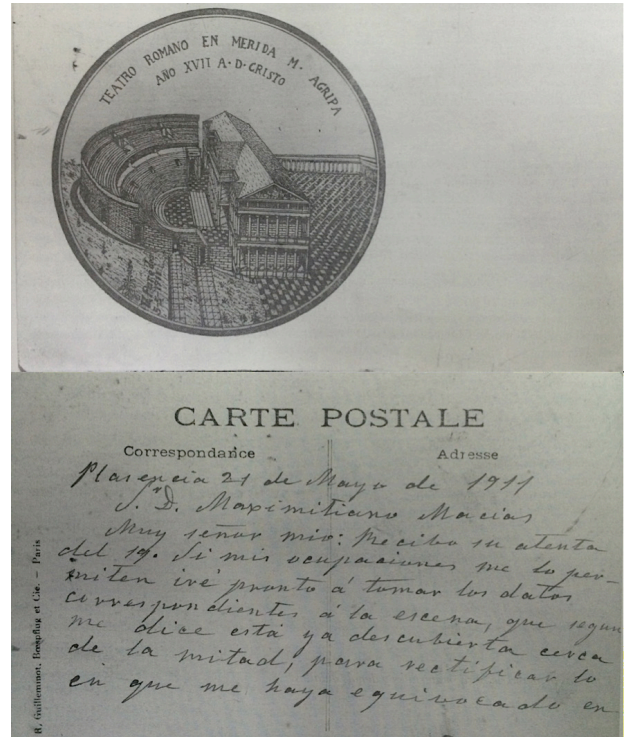 TEATRO ROMANO EN MERIDA M. AGRIPA
AÑO XVII A·D·CRISTO
CARTE POSTALE
Correspondance
Adresse
Plasencia 21 de Mayo de 1911
Sr. D. Maximiliano Macias
Muy señor mio: Recibo su atenta
del 19. Si mis ocupaciones me lo per-
miten iré pronto á tomar los datos
correspondientes á la escena, que segun
me dice está ya descubierta cerca
de la mitad, para rectificar lo
en que me haya equivocado en
R. Guilleminot, Bœspflug et Cie. — Paris